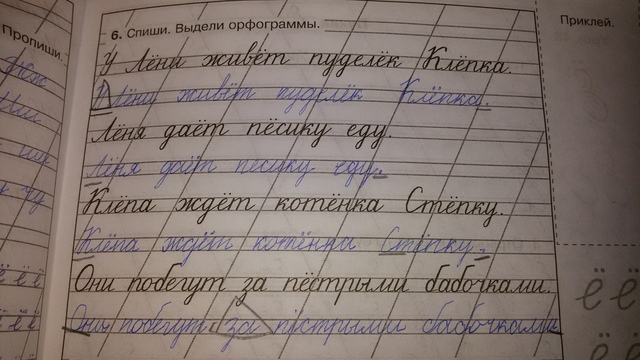 Пропиши.
6. Спиши. Выдели орфограммы.
Приклей.
У Лёни живёт пуделёк Клёпка.
У Лёни живёт пуделёк Клёпка.
Лёня даёт пёсику еду.
Лёня даёт пёсику еду.
Клёпа ждёт котёнка Стёпку.
Клёпа ждёт котёнка Стёпку.
Они побегут за пёстрыми бабочками.
Они побегут за пёстрыми бабочками
ё ё